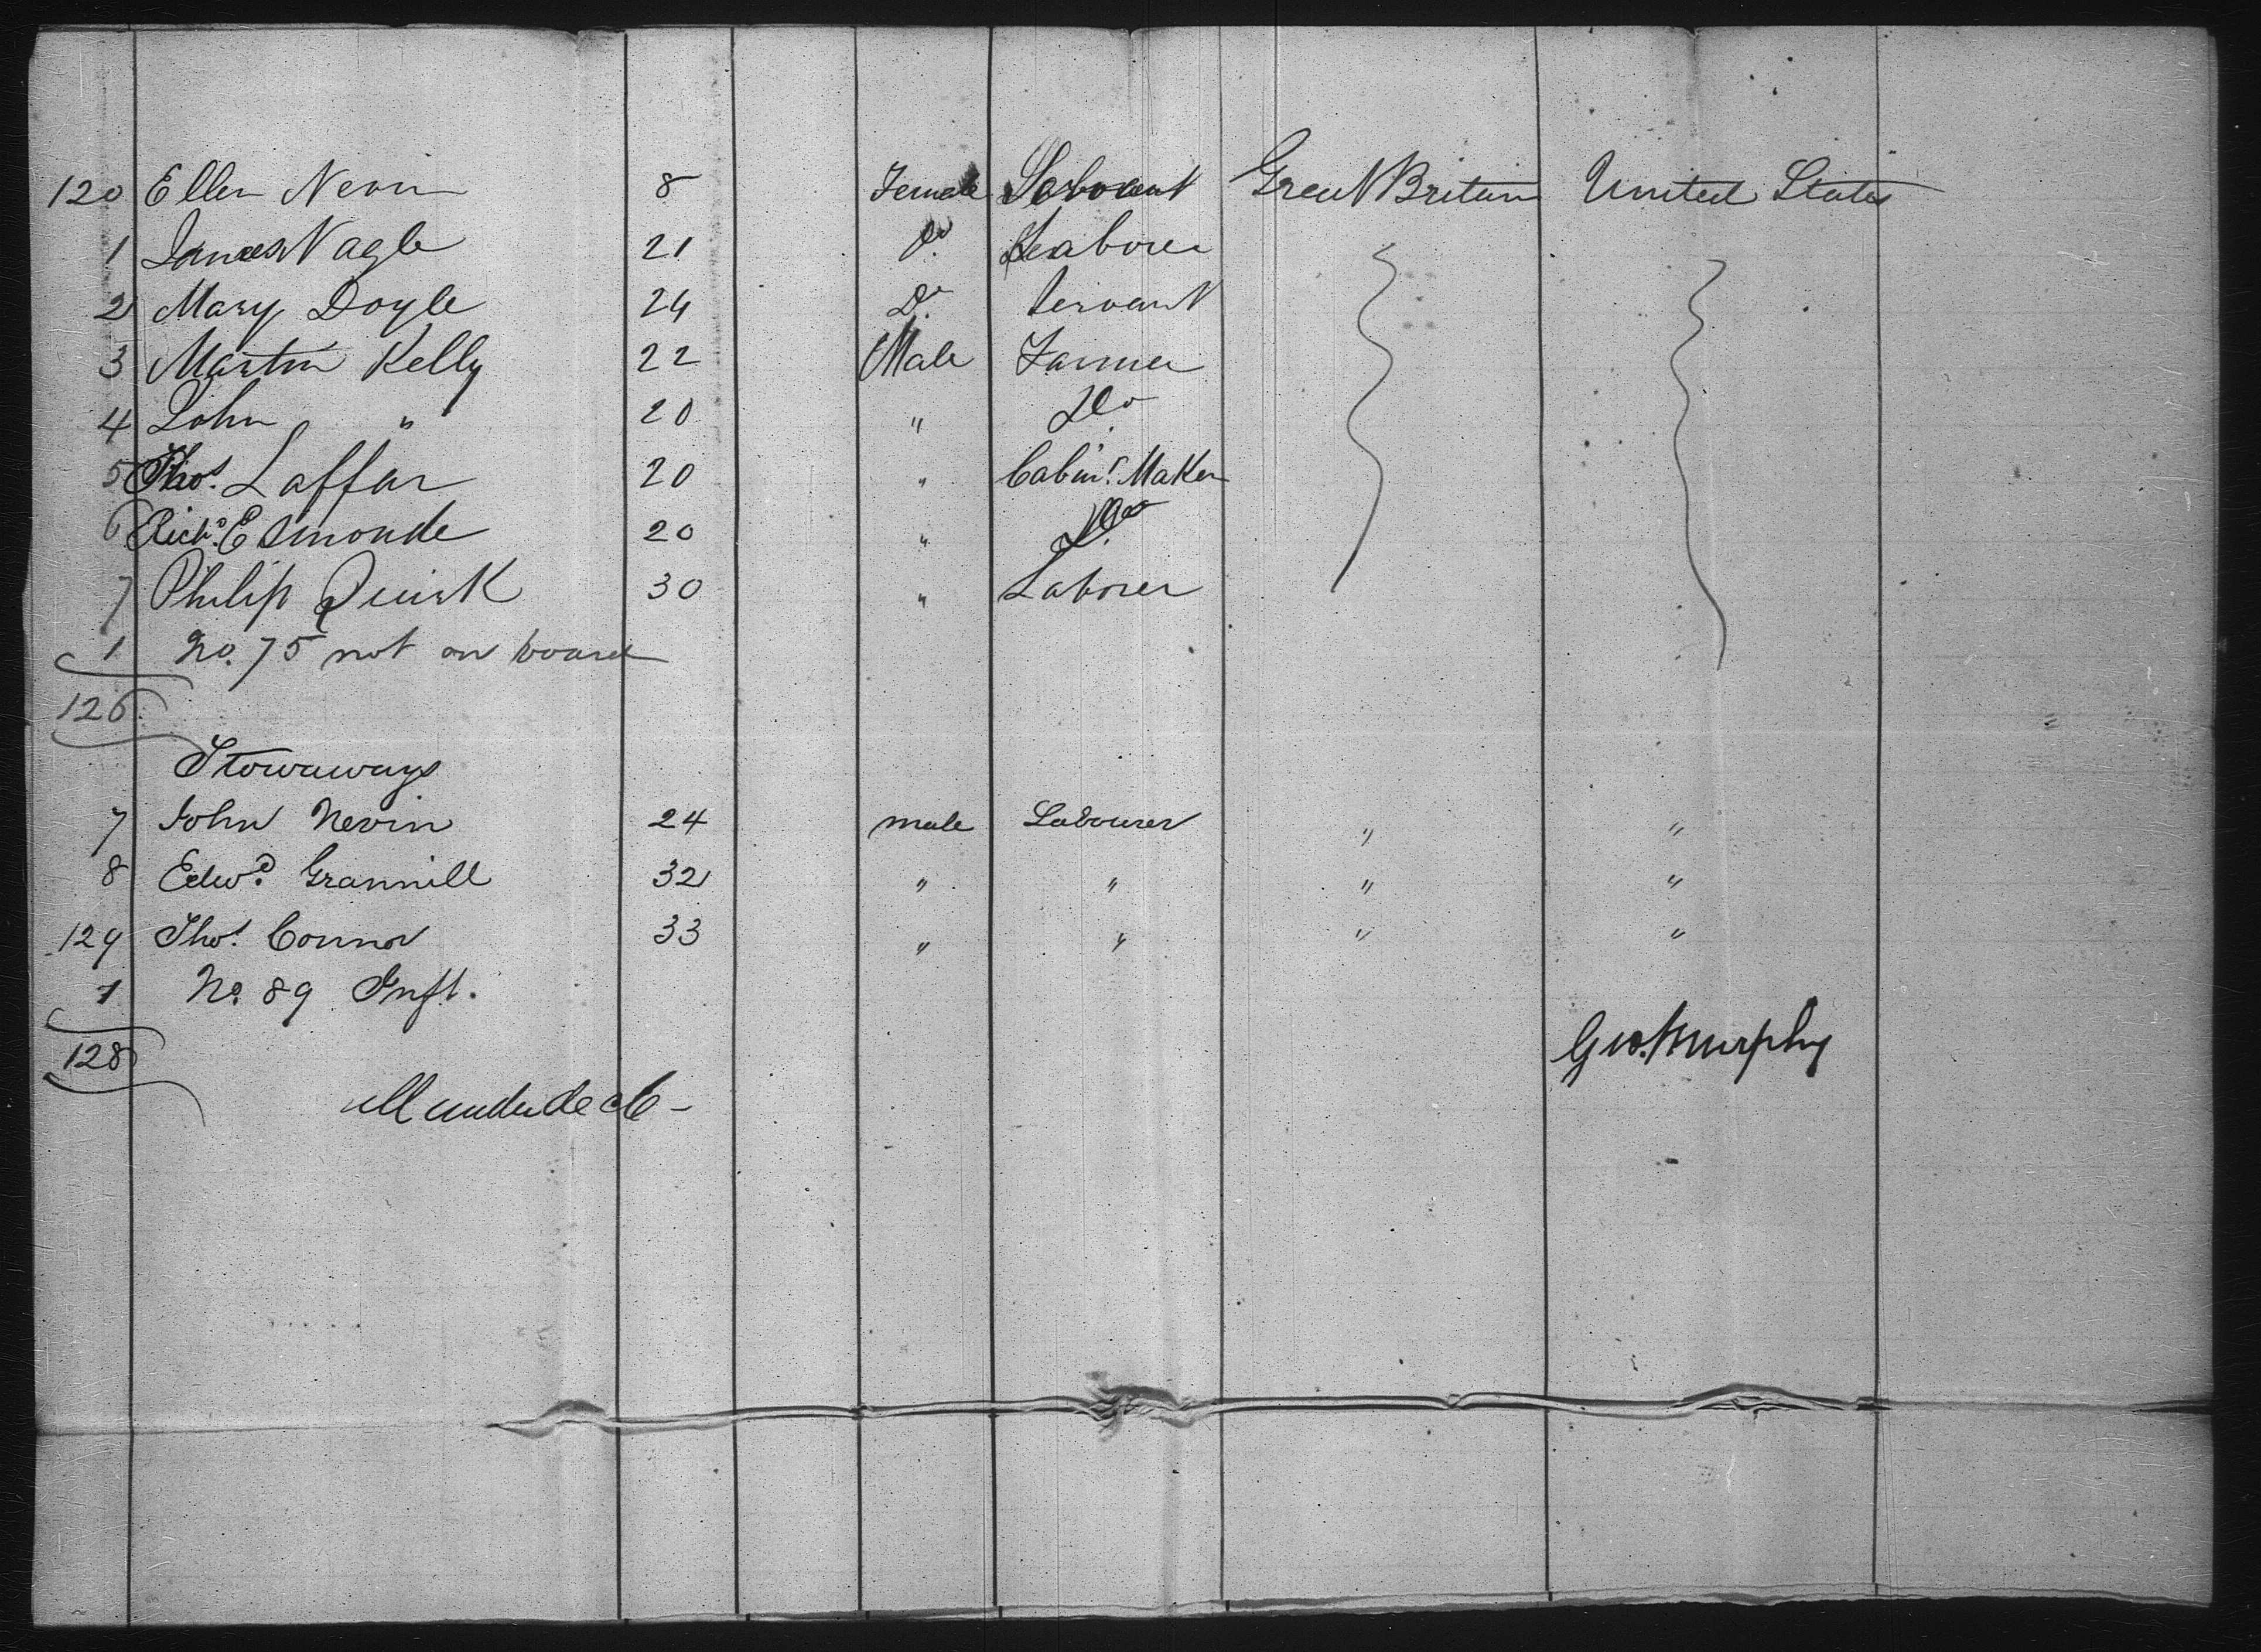 120 Ellen Nevin 8 Female Servant Great Britain United States
1 James Nagle 21 Do. Laborer
2 Mary Doyle 24 Do. Servant
3 Martin Kelly 22 Male Farmer
4 John " 20 " Do
5 Thos. Laffan 20 " Cabint. Maker
6 Richd. Esmonde 20 " Do.
7 Philip Quirk 30 " Laborer
1 No. 75 not on board
126
Stowaways
7 John Nevin 24 male Labourer " "
8 Edwd. Grannill 32 " " " "
129 Thos. Connor 33 " " " "
1 No. 89 Inft.
128
Geo. Murphy
all under deck -